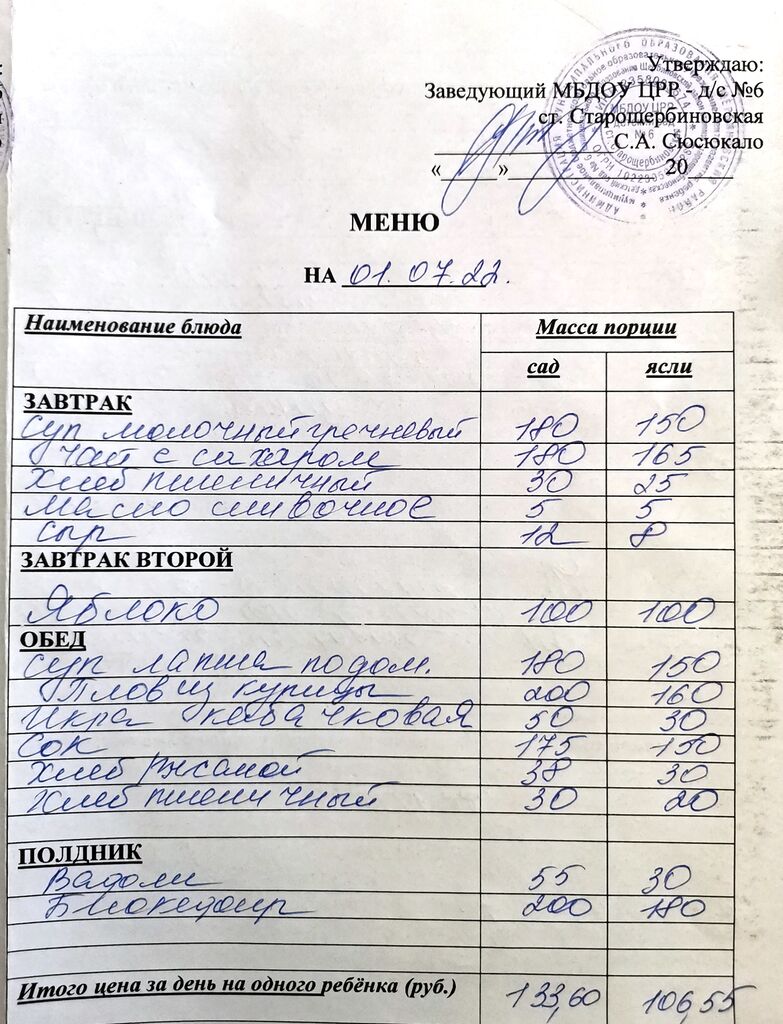 Утверждаю:
Заведующий МБДОУ ЦРР - д/с №6
ст. Старощербиновская
С.А. Сюсюкало
«____»____________ 20____
МЕНЮ
НА 01.07.22.
Наименование блюда Масса порции
сад ясли
ЗАВТРАК
Суп молочный гречневый 180 150
Чай с сахаром 180 165
Хлеб пшеничный 30 25
Масло сливочное 5 5
Сыр 12 8
ЗАВТРАК ВТОРОЙ
Яблоко 100 100
ОБЕД
Суп лапша по дом. 180 150
Плов из курицы 200 160
Икра кабачковая 50 30
Сок 175 150
Хлеб ржаной 38 30
Хлеб пшеничный 30 20
ПОЛДНИК
Вафли 55 30
Биокефир 200 180
Итого цена за день на одного ребёнка (руб.) 133,60 106,55